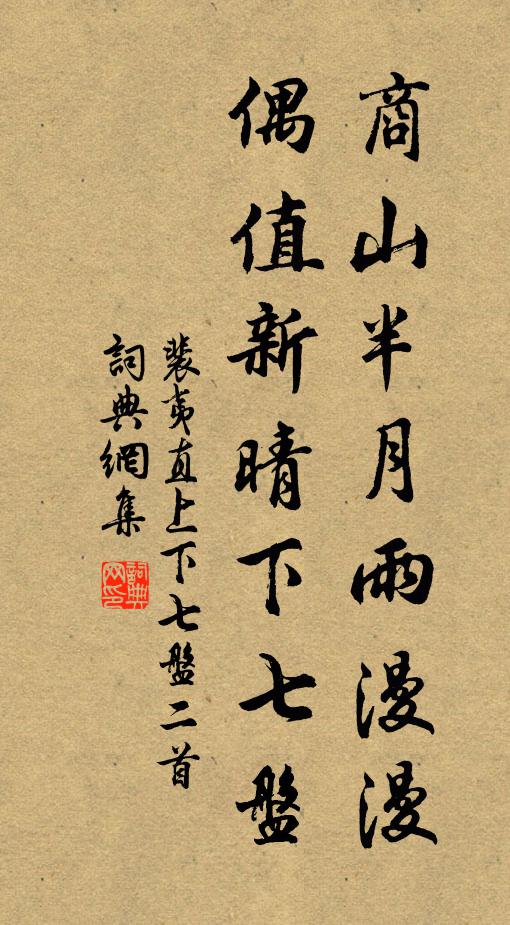 商山半月雨漫漫
偶值新晴下七盤
裴夷直上下七盤二首
詞典網集
詞典網印